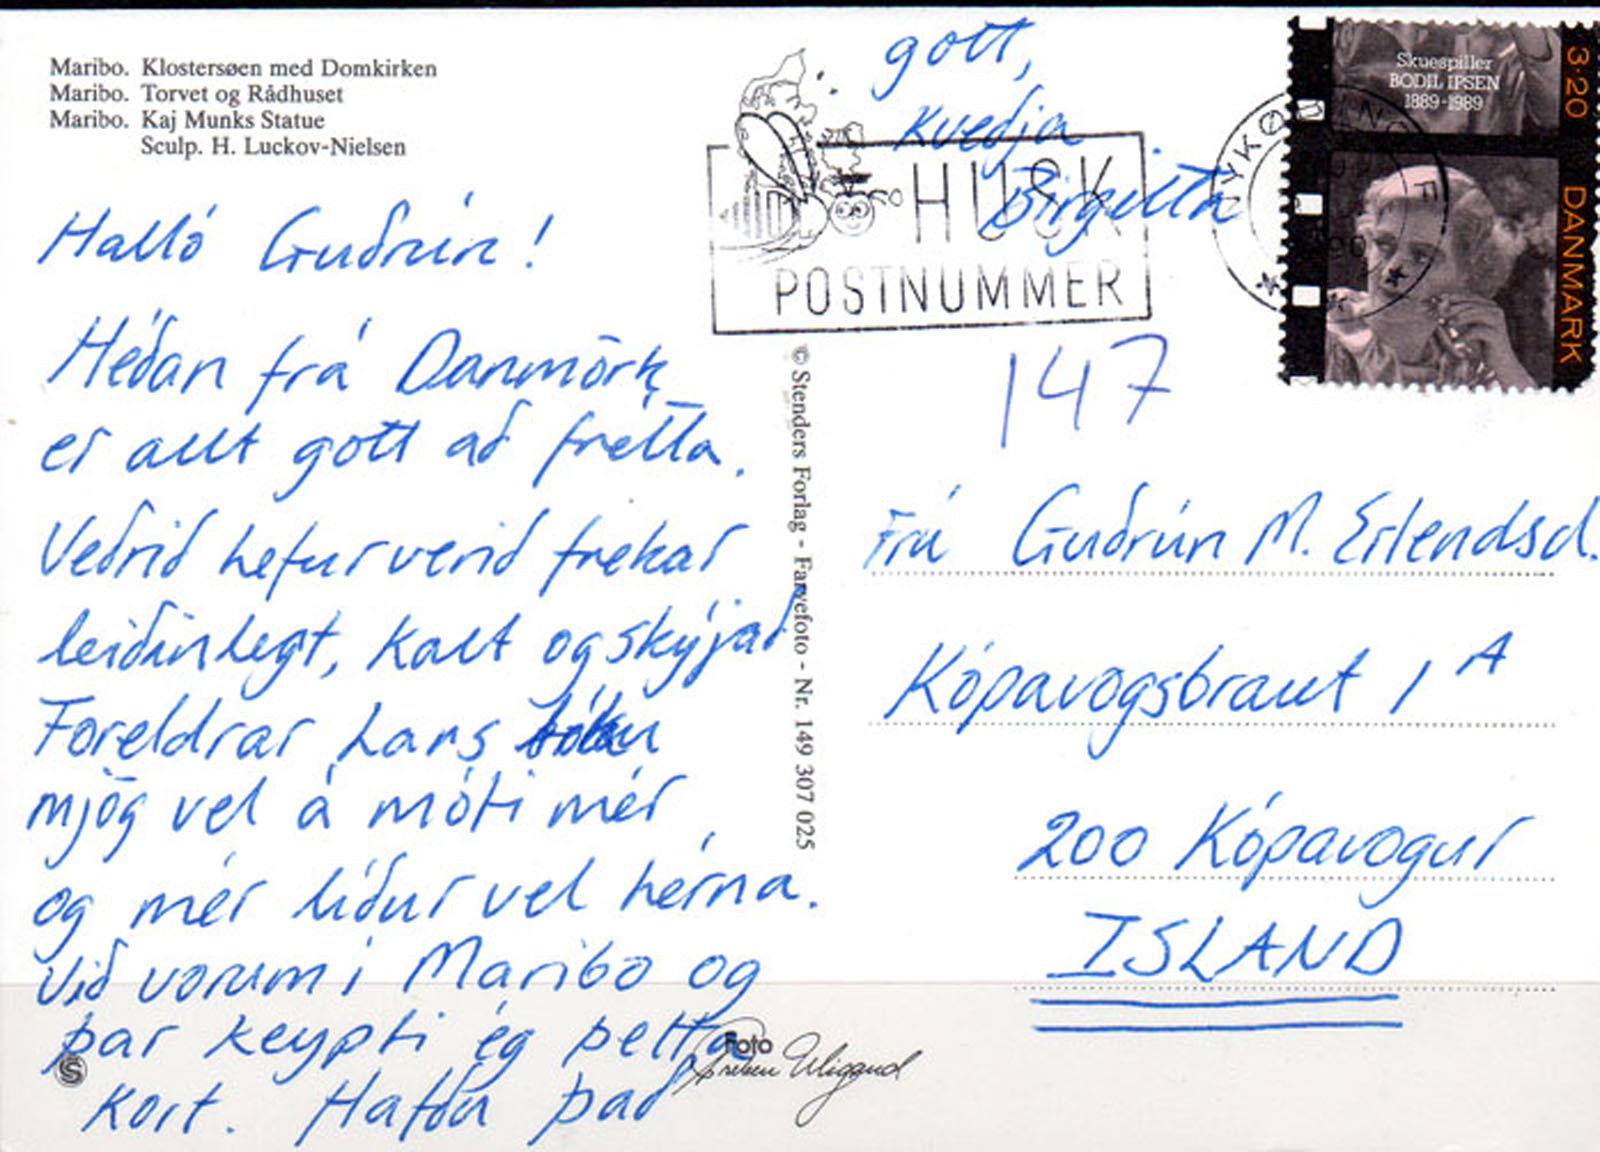 Maribo. Klostersøen med Domkirken
Maribo. Torvet og Rådhuset
Maribo. Kaj Munks Statue
Sculp. H. Luckov-Nielsen
Halló Guðrún!
Héðan frá Danmörk
er allt gott að frétta.
Veðrið hefur verið frekar
leiðinlegt, kalt og skýjað
Foreldrar Lars tóku
mjög vel á móti mér,
og mér líður vel hérna.
Við vorum í Maribo og
þar keypti ég þetta
kort. Hafðu það
gott,
kveðja
Birgitta
HUSK
POSTNUMMER
Skuespiller
BODIL IPSEN
1889-1989
3.20 DANMARK
147
© Stenders Forlag - Farvefoto - Nr. 149 307 025
Frú Guðrún M. Erlendsd.
Kópavogsbraut 1 A
200 Kópavogur
ISLAND
Foto
S